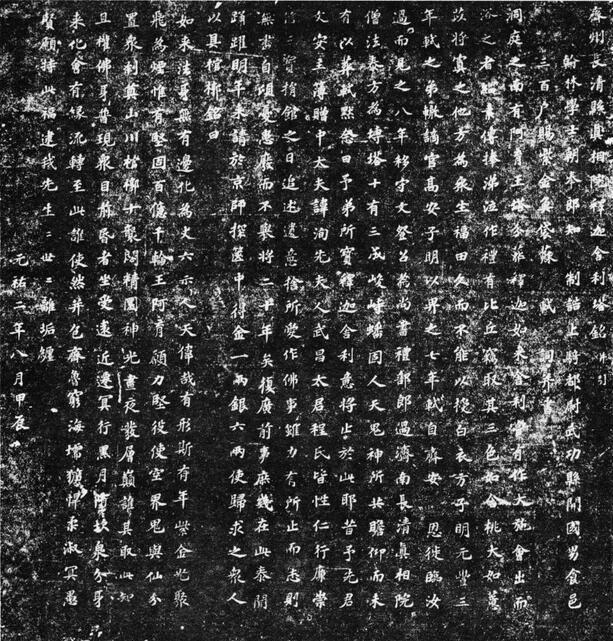 齊州長清縣真相院釋迦舍利塔銘并引
翰林學士朝奉郎知 制誥上騎都尉武功縣開國男食邑
三百戶賜紫金魚袋蘇 軾
洞庭之南有阿育王塔分葬釋迦如來舍利嘗有作大施會出而
浴之者緇素傳捧涕泣作禮有比丘竊取其三色如含桃大如薏
苡將寘之他方為眾生福田久而不能以授白衣方子明元豐三
年軾之弟轍謫官高安子明以畀之七年軾自齊安 恩徙臨汝
過而見之八年移守文登召為尚書禮部郎過濟南長清真相院
僧法泰方為塼塔十有三成峻峙蟠固人天鬼神所共瞻仰而未
有以葬軾默念曰予弟所寶釋迦舍利意將止於此耶昔予先君
文安主簿贈中大夫諱洵先夫人武昌太君程氏皆性仁行廉崇
信三寶捐館之日追述遺意捨所愛作佛事雖力有所止而志則
無盡自頃憂患廢而不舉將二十年矣復廣前事庶幾在此泰聞
踴躍明年來請於京師探篋中得金一兩銀六兩使歸求之眾人
以具棺槨銘曰
如來法身無有邊化為丈六示人天偉哉有形斯有年紫金光聚
飛為煙惟有堅固百億千輪王阿育願力堅役使空界鬼與仙分
置眾剎奠山川棺槨十襲閟精圜神光晝夜發層巔誰其取此知
且權佛身普現眾目前昏者坐受遠近遷冥行黑月墮坎泉分身
來化會有緣流轉至此誰使然并包齊魯窮海壖獷悍柔淑冥愚
賢願持此福逮我先生生世世離垢纏
元祐二年八月甲辰